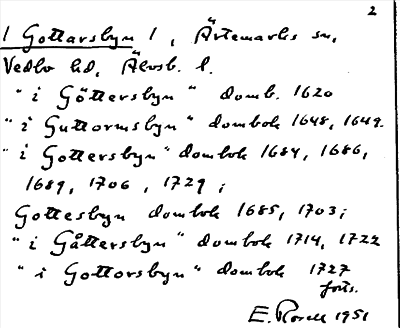 2
1 Gottarsbyn 1, Ärtemarks sn,
Vedbo hd, Älvsb. l.
"i Göttersbyn" domb. 1620
"i Guttormsbyn" dombok 1648, 1649.
"i Gottersbyn" dombok 1684, 1686,
1689, 1706, 1729;
Gottesbyn dombok 1685, 1703;
"i Gåttersbyn" dombok 1714, 1722
"i Gottorsbyn" dombok 1727
forts.
E. Rosell 1951